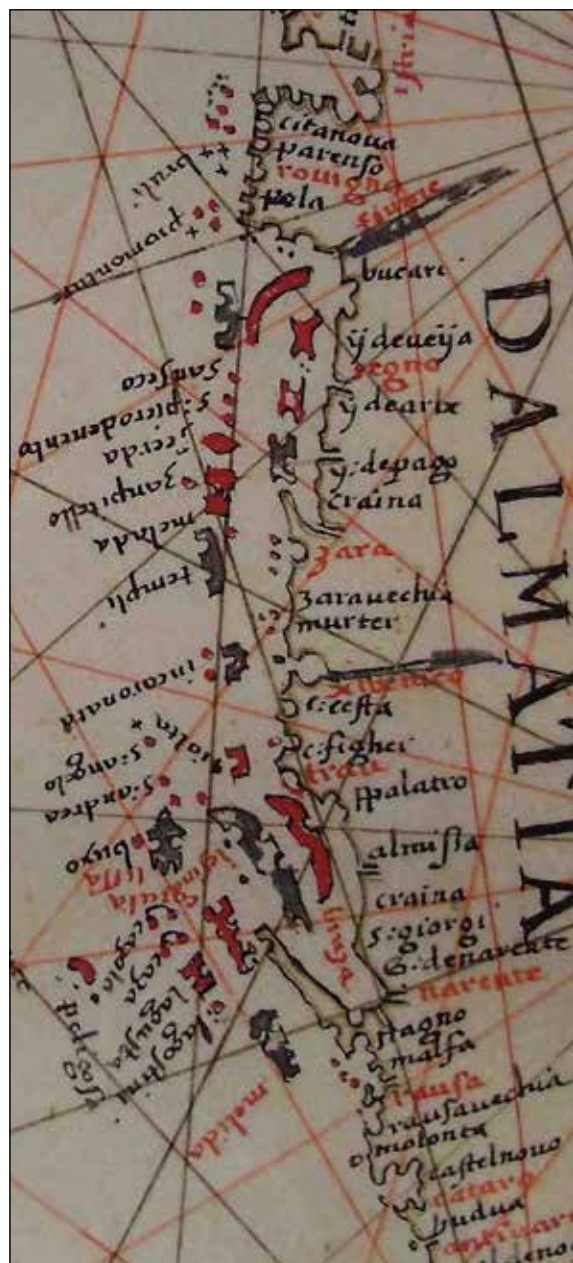 istria
citanoua
parenso
rouigno
pola
fiume
bucari
ÿ deueÿa
segno
ÿ dearix
ÿ: depago
craina
zara
zarauechia
murter
c: cesta
c: figher
trau
spalatro
almissa
craina
s: giorgi
G: denarente
narente
stagno
malfa
rausa
rausauechia
molonta
castelnouo
cataro
budua
antiuari
DALMATIA
bruli
sanseco
s: pierodenenbo
scerda
zanpitello
melada
templi
incoronata
s: angelo
s: andrea
buxo
lissa
cazola
caza
lagusta
lagostini
melida